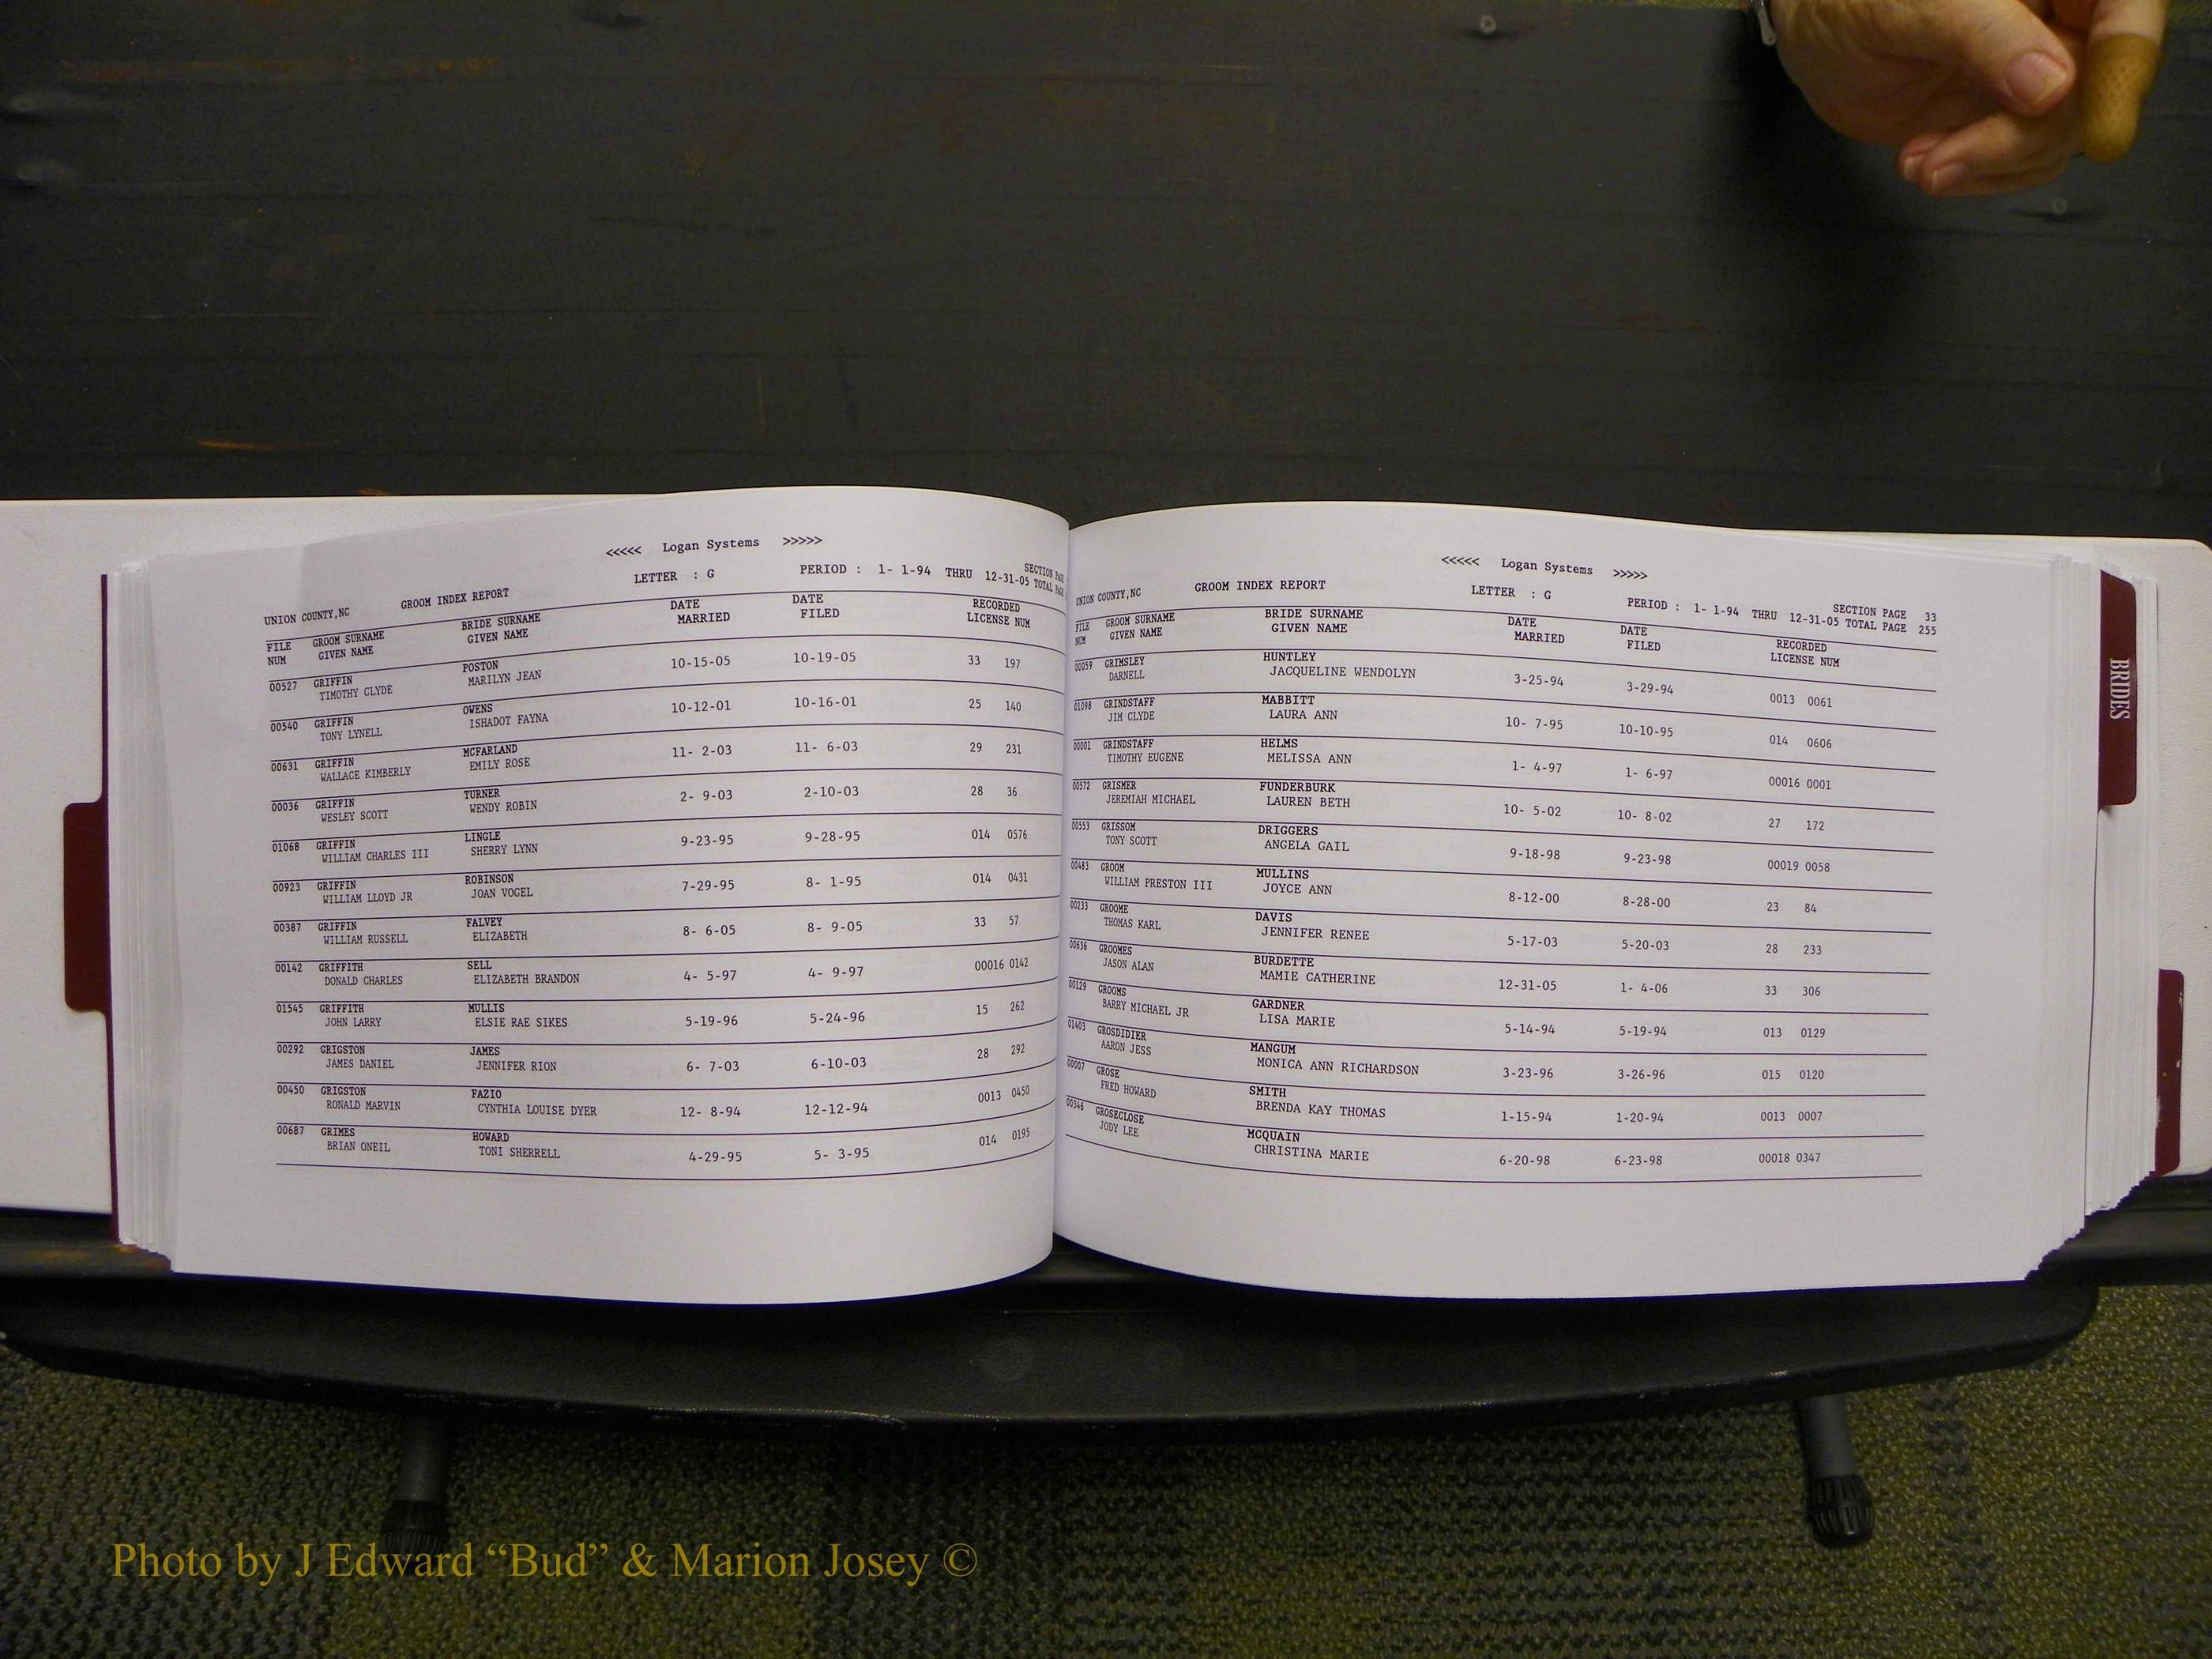 <<<<< Logan Systems >>>>>
UNION COUNTY,NC GROOM INDEX REPORT LETTER : G PERIOD : 1- 1-94 THRU 12-31-05 SECTION PAGE
TOTAL PAGE
FILE GROOM SURNAME BRIDE SURNAME DATE DATE RECORDED
NUM GIVEN NAME GIVEN NAME MARRIED FILED LICENSE NUM
00527 GRIFFIN POSTON 10-15-05 10-19-05 33 197
TIMOTHY CLYDE MARILYN JEAN
00540 GRIFFIN OWENS 10-12-01 10-16-01 25 140
TONY LYNELL ISHADOT FAYNA
00631 GRIFFIN MCFARLAND 11- 2-03 11- 6-03 29 231
WALLACE KIMBERLY EMILY ROSE
00036 GRIFFIN TURNER 2- 9-03 2-10-03 28 36
WESLEY SCOTT WENDY ROBIN
01068 GRIFFIN LINGLE 9-23-95 9-28-95 014 0576
WILLIAM CHARLES III SHERRY LYNN
00923 GRIFFIN ROBINSON 7-29-95 8- 1-95 014 0431
WILLIAM LLOYD JR JOAN VOGEL
00387 GRIFFIN FALVEY 8- 6-05 8- 9-05 33 57
WILLIAM RUSSELL ELIZABETH
00142 GRIFFITH SELL 4- 5-97 4- 9-97 00016 0142
DONALD CHARLES ELIZABETH BRANDON
01545 GRIFFITH MULLIS 5-19-96 5-24-96 15 262
JOHN LARRY ELSIE RAE SIKES
00292 GRIGSTON JAMES 6- 7-03 6-10-03 28 292
JAMES DANIEL JENNIFER RION
00450 GRIGSTON FAZIO 12- 8-94 12-12-94 0013 0450
RONALD MARVIN CYNTHIA LOUISE DYER
00687 GRIMES HOWARD 4-29-95 5- 3-95 014 0195
BRIAN ONEIL TONI SHERRELL
<<<<< Logan Systems >>>>>
UNION COUNTY,NC GROOM INDEX REPORT LETTER : G PERIOD : 1- 1-94 THRU 12-31-05 SECTION PAGE 33
TOTAL PAGE 255
FILE GROOM SURNAME BRIDE SURNAME DATE DATE RECORDED
NUM GIVEN NAME GIVEN NAME MARRIED FILED LICENSE NUM
00059 GRIMSLEY HUNTLEY 3-25-94 3-29-94 0013 0061
DARNELL JACQUELINE WENDOLYN
01098 GRINDSTAFF MABBITT 10- 7-95 10-10-95 014 0606
JIM CLYDE LAURA ANN
00001 GRINDSTAFF HELMS 1- 4-97 1- 6-97 00016 0001
TIMOTHY EUGENE MELISSA ANN
00572 GRISMER FUNDERBURK 10- 5-02 10- 8-02 27 172
JEREMIAH MICHAEL LAUREN BETH
00553 GRISSOM DRIGGERS 9-18-98 9-23-98 00019 0058
TONY SCOTT ANGELA GAIL
00483 GROOM MULLINS 8-12-00 8-28-00 23 84
WILLIAM PRESTON III JOYCE ANN
00233 GROOME DAVIS 5-17-03 5-20-03 28 233
THOMAS KARL JENNIFER RENEE
00636 GROOMES BURDETTE 12-31-05 1- 4-06 33 306
JASON ALAN MAMIE CATHERINE
00129 GROOMS GARDNER 5-14-94 5-19-94 013 0129
BARRY MICHAEL JR LISA MARIE
01403 GROSDIDIER MANGUM 3-23-96 3-26-96 015 0120
AARON JESS MONICA ANN RICHARDSON
00007 GROSE SMITH 1-15-94 1-20-94 0013 0007
FRED HOWARD BRENDA KAY THOMAS
00346 GROSECLOSE MCQUAIN 6-20-98 6-23-98 00018 0347
JODY LEE CHRISTINA MARIE
BRIDES
Photo by J Edward “Bud” & Marion Josey ©